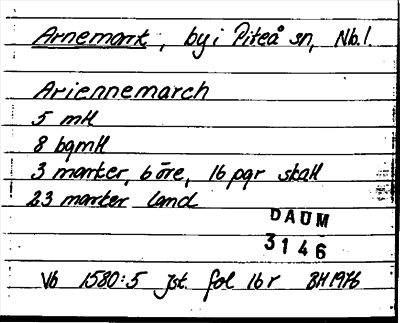 Arnemark, by i Piteå sn, Nb.l.
Ariennemarch
5 mtl
8 bgmtl
3 marker, 6 öre, 16 pgr skatt
23 marker land
DAUM
3146
Vb 1580:5 Jst. fol 16 r BH 1976